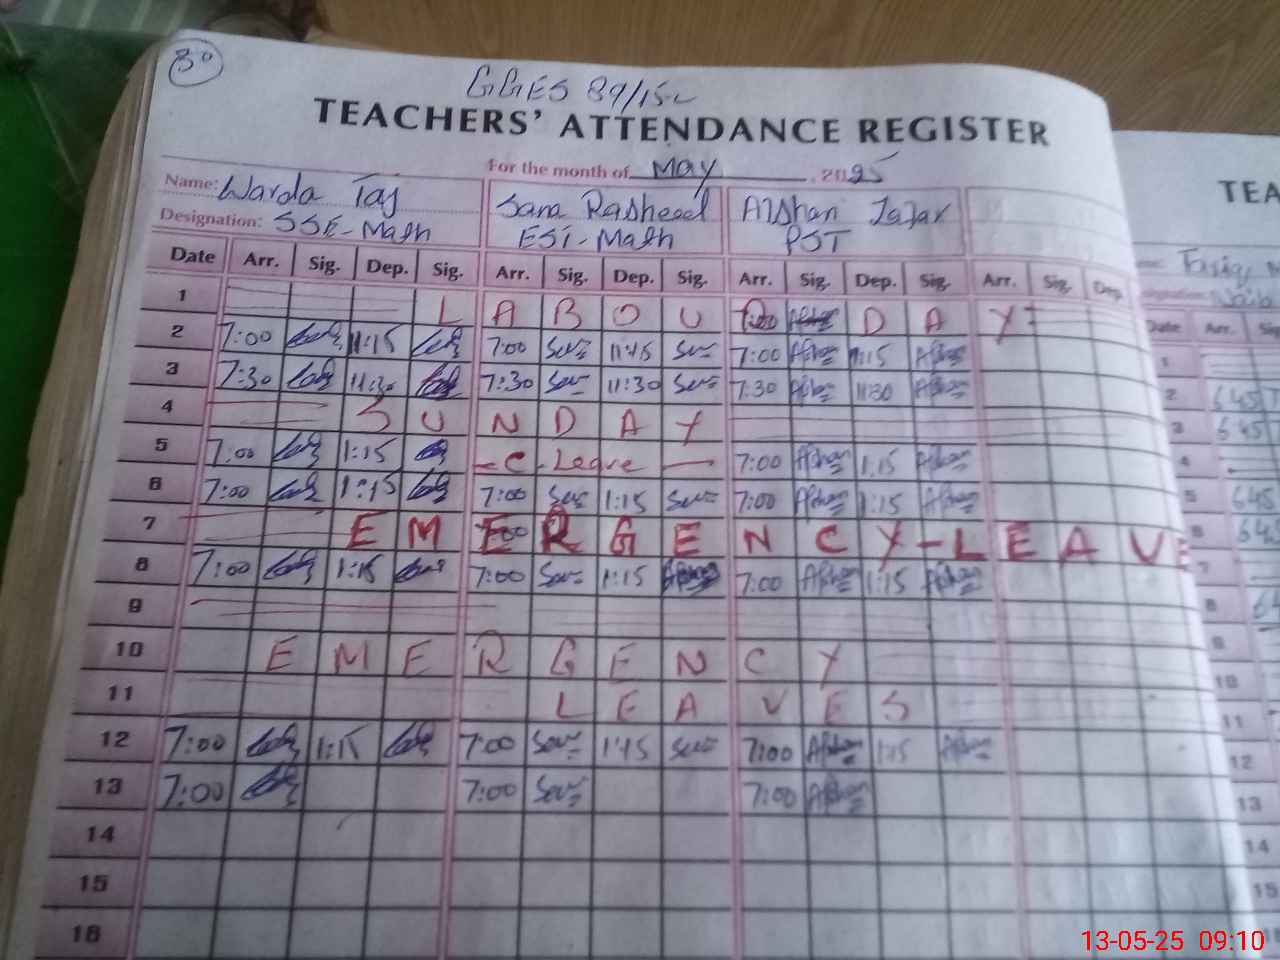 30
GGES 89/15-L
TEACHERS' ATTENDANCE REGISTER
For the month of May, 2025
Name: Warda Taj Sana Rasheed Afshan Zafar
Designation: SSE-Math ESE-Math PST
Date Arr. Sig. Dep. Sig. Arr. Sig. Dep. Sig. Arr. Sig. Dep. Sig. Arr. Sig. Dep.
1 L A B O U R D A Y
2 7:00 11:15 7:00 11:15 7:00 Afshan 11:15 Afshan
3 7:30 11:30 7:30 11:30 7:30 Afshan 11:30 Afshan
4 S U N D A Y
5 7:00 1:15 - C - Leave - 7:00 Afshan 1:15 Afshan
6 7:00 1:15 7:00 1:15 7:00 Afshan 1:15 Afshan
7 E M E R G E N C Y - L E A V E
8 7:00 1:15 7:00 1:15 7:00 Afshan 1:15 Afshan
9
10 E M E R G E N C Y
11 L E A V E S
12 7:00 1:15 7:00 1:15 7:00 Afshan 1:15 Afshan
13 7:00 7:00 7:00 Afshan
14
15
16
TEA
Date Arr. Sig.
1
2 6:45
3 6:45
4
5 6:45
6
7
8
9
10
11
12
13
14
15
13-05-25 09:10